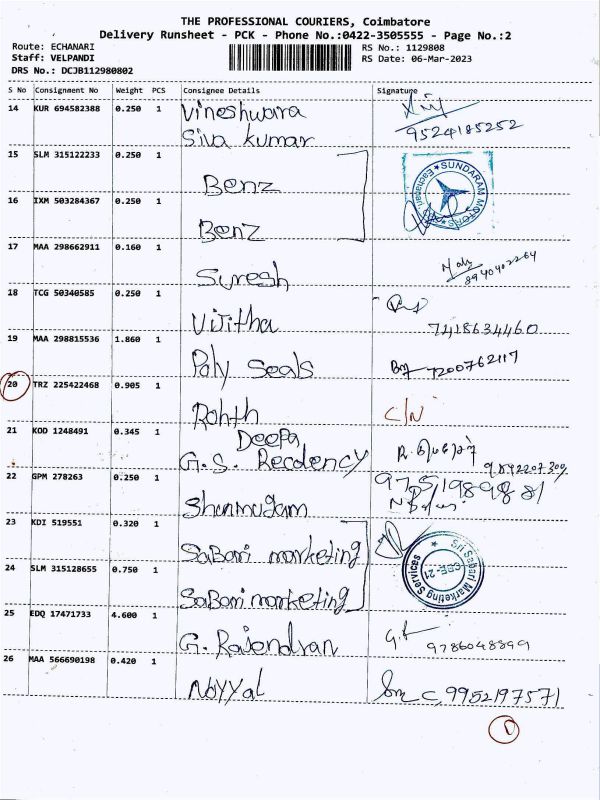 THE PROFESSIONAL COURIERS, Coimbatore
Delivery Runsheet - PCK - Phone No.:0422-3505555 - Page No.:2
Route: ECHANARI RS No.: 1129808
Staff: VELPANDI RS Date: 06-Mar-2023
DRS No.: DCJB112980802
S No Consignment No Weight PCS Consignee Details Signature
14 KUR 694582388 0.250 1 Vineshwara
Siva kumar 9524185252
15 SLM 315122233 0.250 1 Benz SUNDARAM MOTORS Eachanari
16 IXM 503284367 0.250 1 Benz
17 MAA 298662911 0.160 1 Suresh 8940402264
18 TCG 50340585 0.250 1 Vijitha 7418634460
19 MAA 298815536 1.860 1 Poly Seals 7200762117
20 TRZ 225422468 0.905 1 Rohth C/N
21 KOD 1248491 0.345 1 Deepa
G.S. Recdency
22 GPM 278263 0.250 1 Shunmugam 9751989881
23 KDI 519551 0.320 1 SaBari marketing Sri Sabari Marketing Services CBE-21
24 SLM 315128655 0.750 1 SaBari marketing
25 EDQ 17471733 4.600 1 G. Rajendran 9786048899
26 MAA 566690198 0.420 1 Noyyal 9952197571